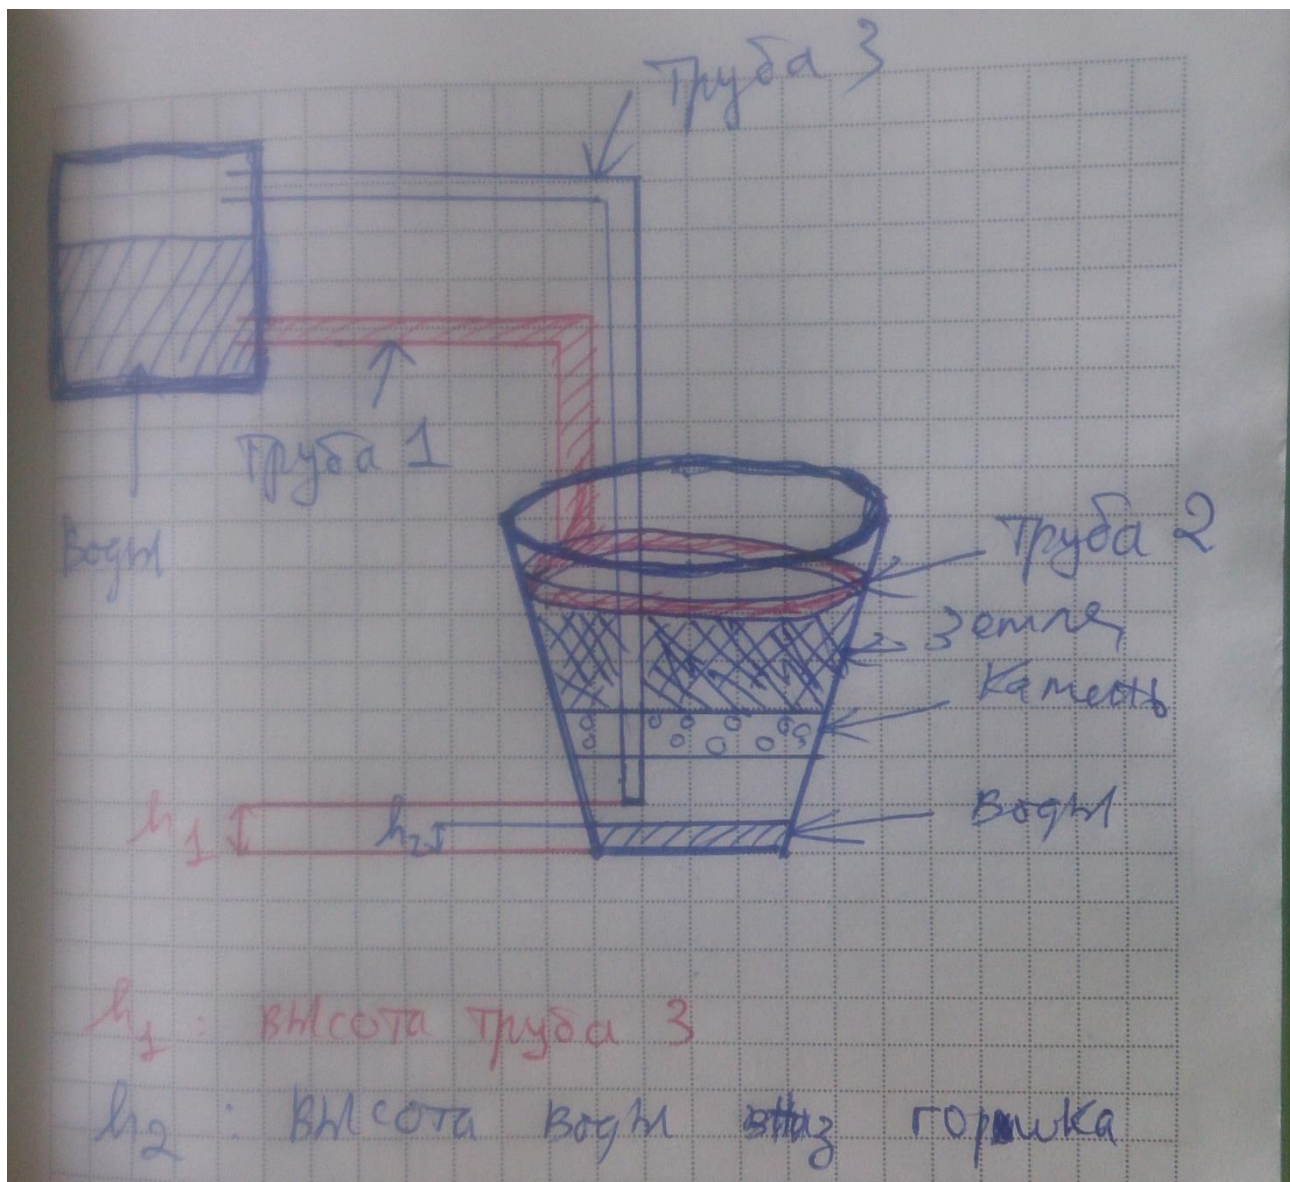 Труба 3
Труба 1
Воды
Труба 2
Земля
Камень
Воды
h1
h2
h1 : высота труба 3
h2 : высота воды вниз горшка